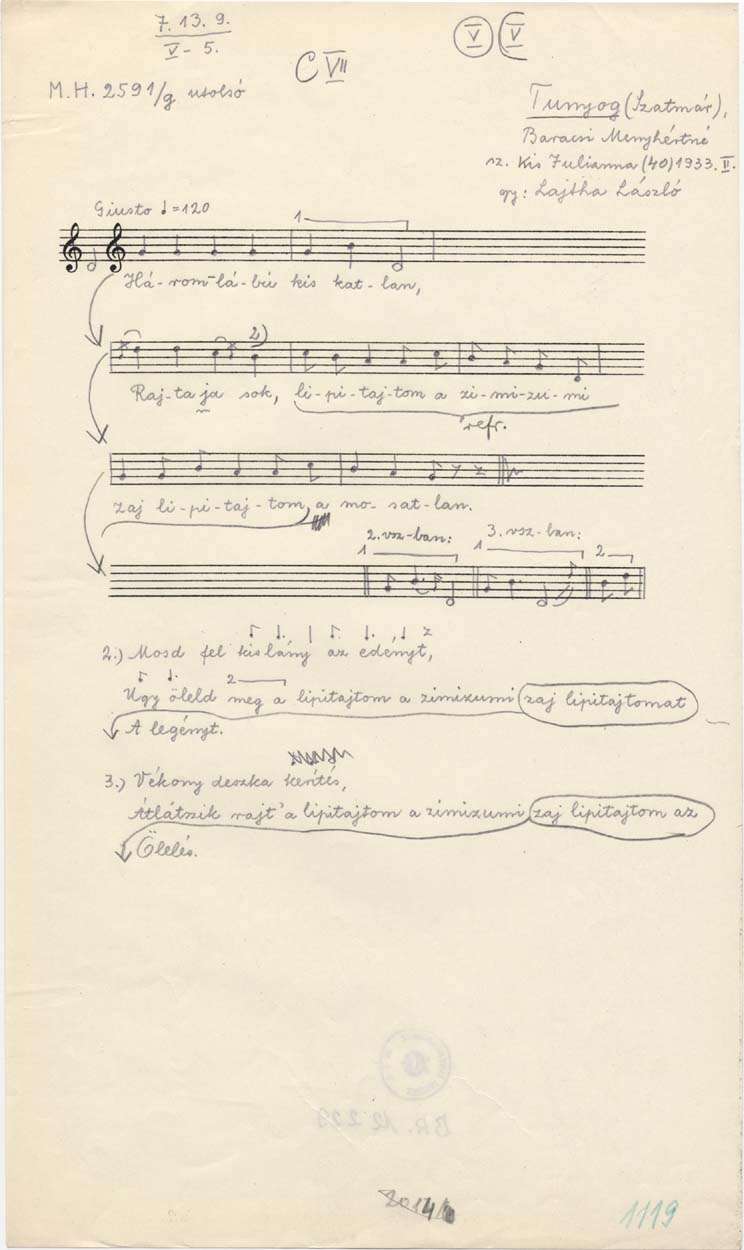 7. 13. 9.
V - 5.
V V
C VII
M.H. 2591/g utolsó
Tunyog (Szatmár),
Baracsi Menyhértné
sz. Kis Julianna (40) 1933. II.
gy: Lajtha László
Giusto ♩=120
1
Há-rom-lá-bú kis kat-lan,
2)
Raj-ta ja sok, li-pi-taj-tom a zi-mi-zu-mi
refr.
zaj li-pi-taj-tom, a mo-sat-lan.
2. vsz-ban: 3. vsz-ban:
1 1 2
2.) Mosd fel kislány az edényt,
2
Ugy öleld meg a lipitajtom a zimizumi zaj lipitajtomat
A legényt.
3.) Vékony deszka kerítés,
Átlátszik rajt' a lipitajtom a zimizumi zaj lipitajtom az
Ölelés.
BR. 12 223
1119